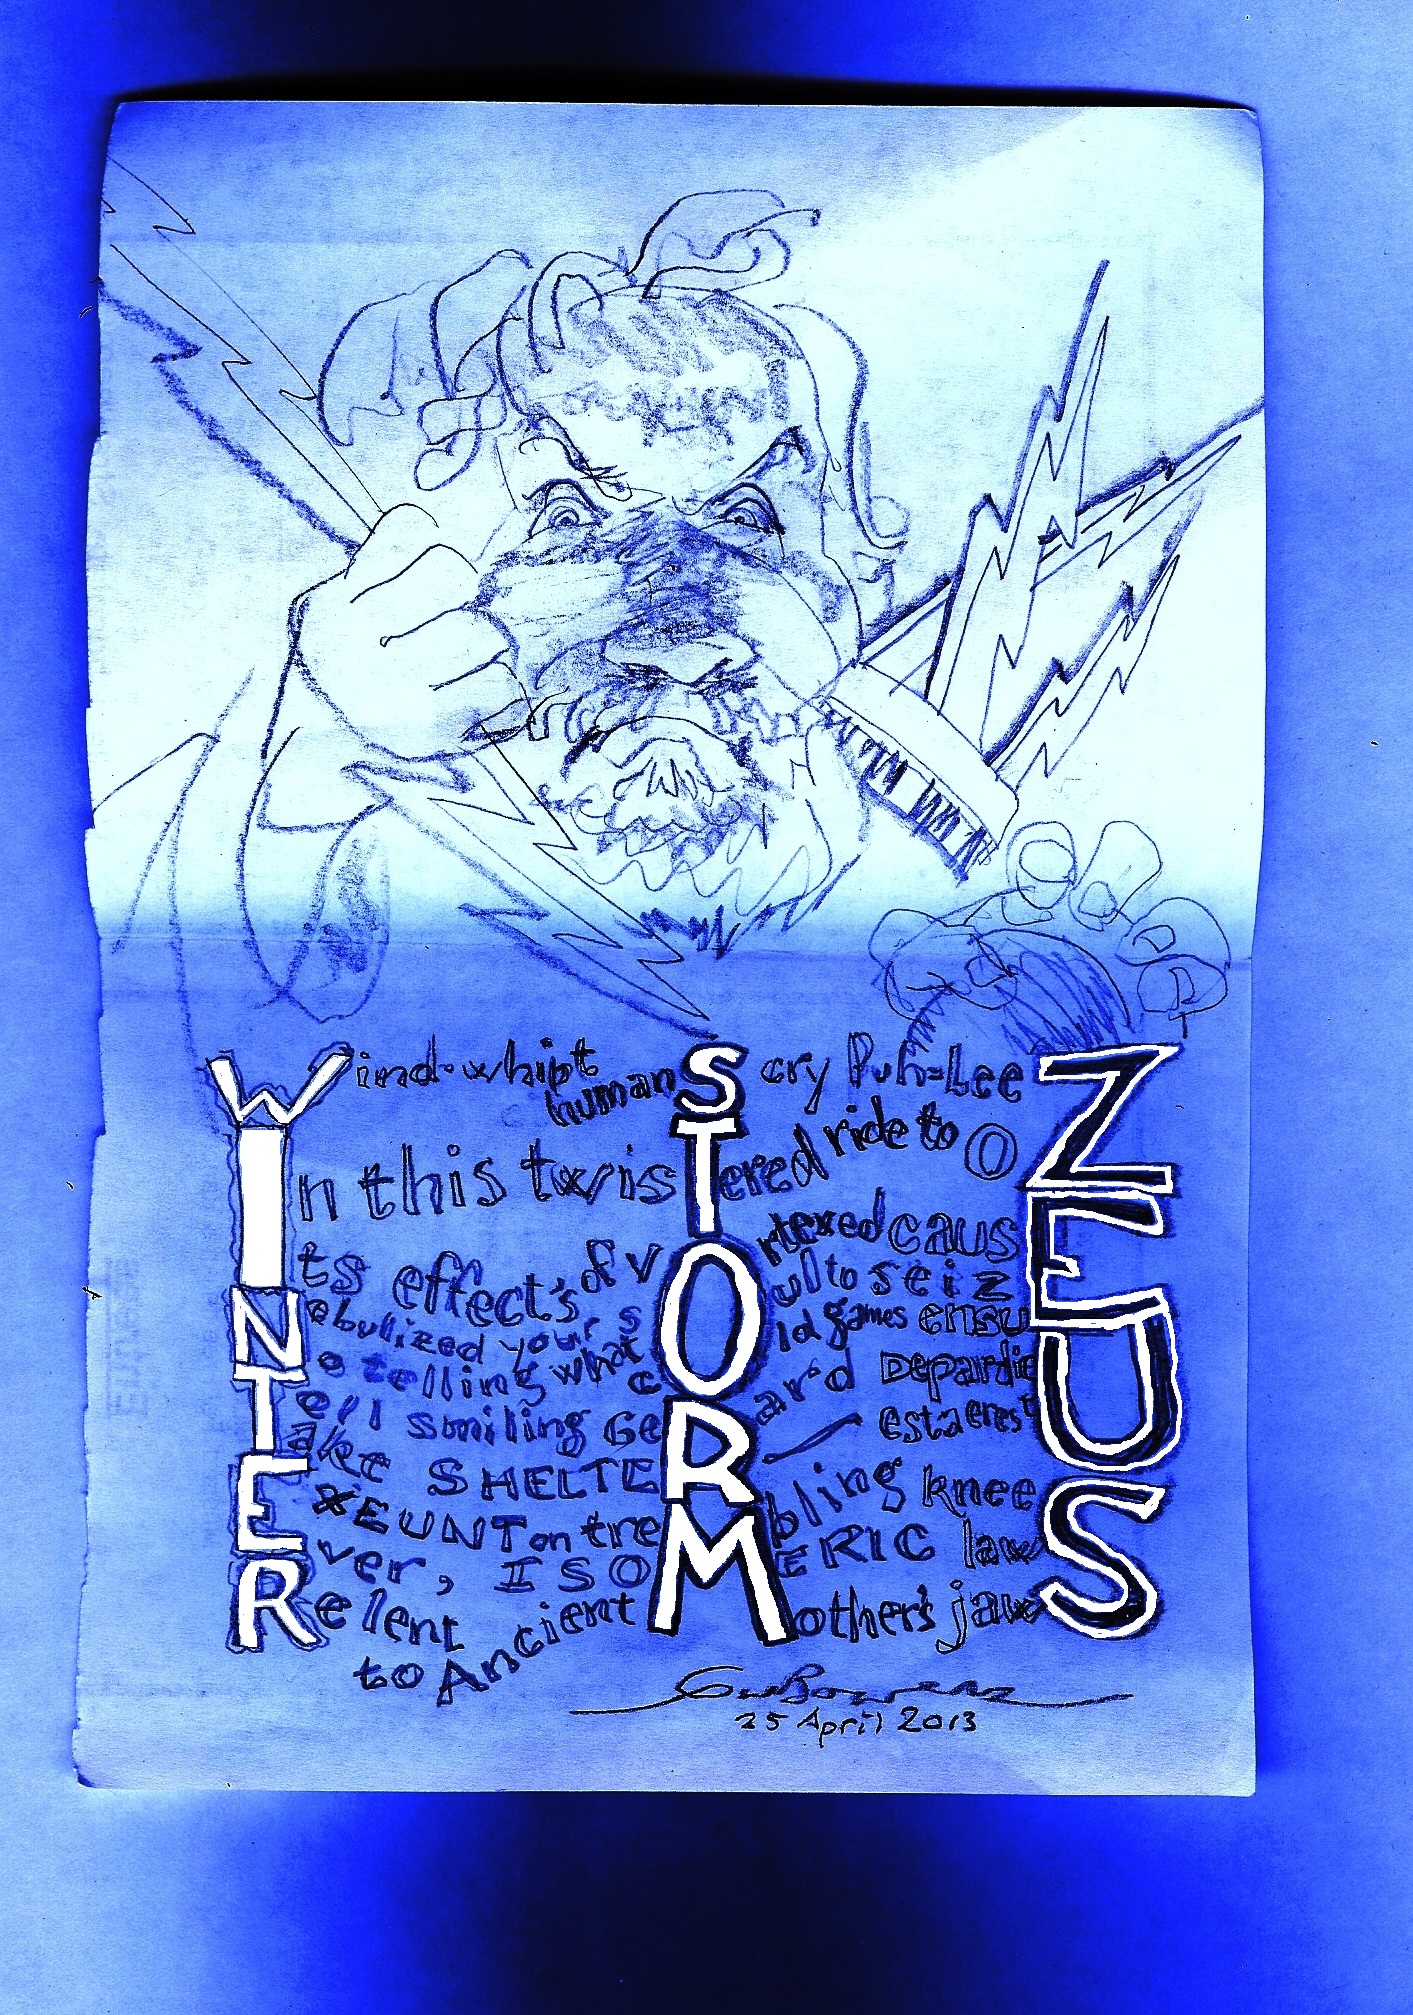 Wind-whipt humans cry Puh-LeeZ
In this twistered ride to OZ
Its effect's of vOrtexed causE
Nebulized your sOul to seizE
No telling what cOld games ensuE
Tell smiling GeRard DepardieU
Take SHELTER — esta eres tU
EXEUNT on treMbling kneeS
Ever, ISOMERIC lawS
Relent to Ancient Mother's jawS
25 April 2013